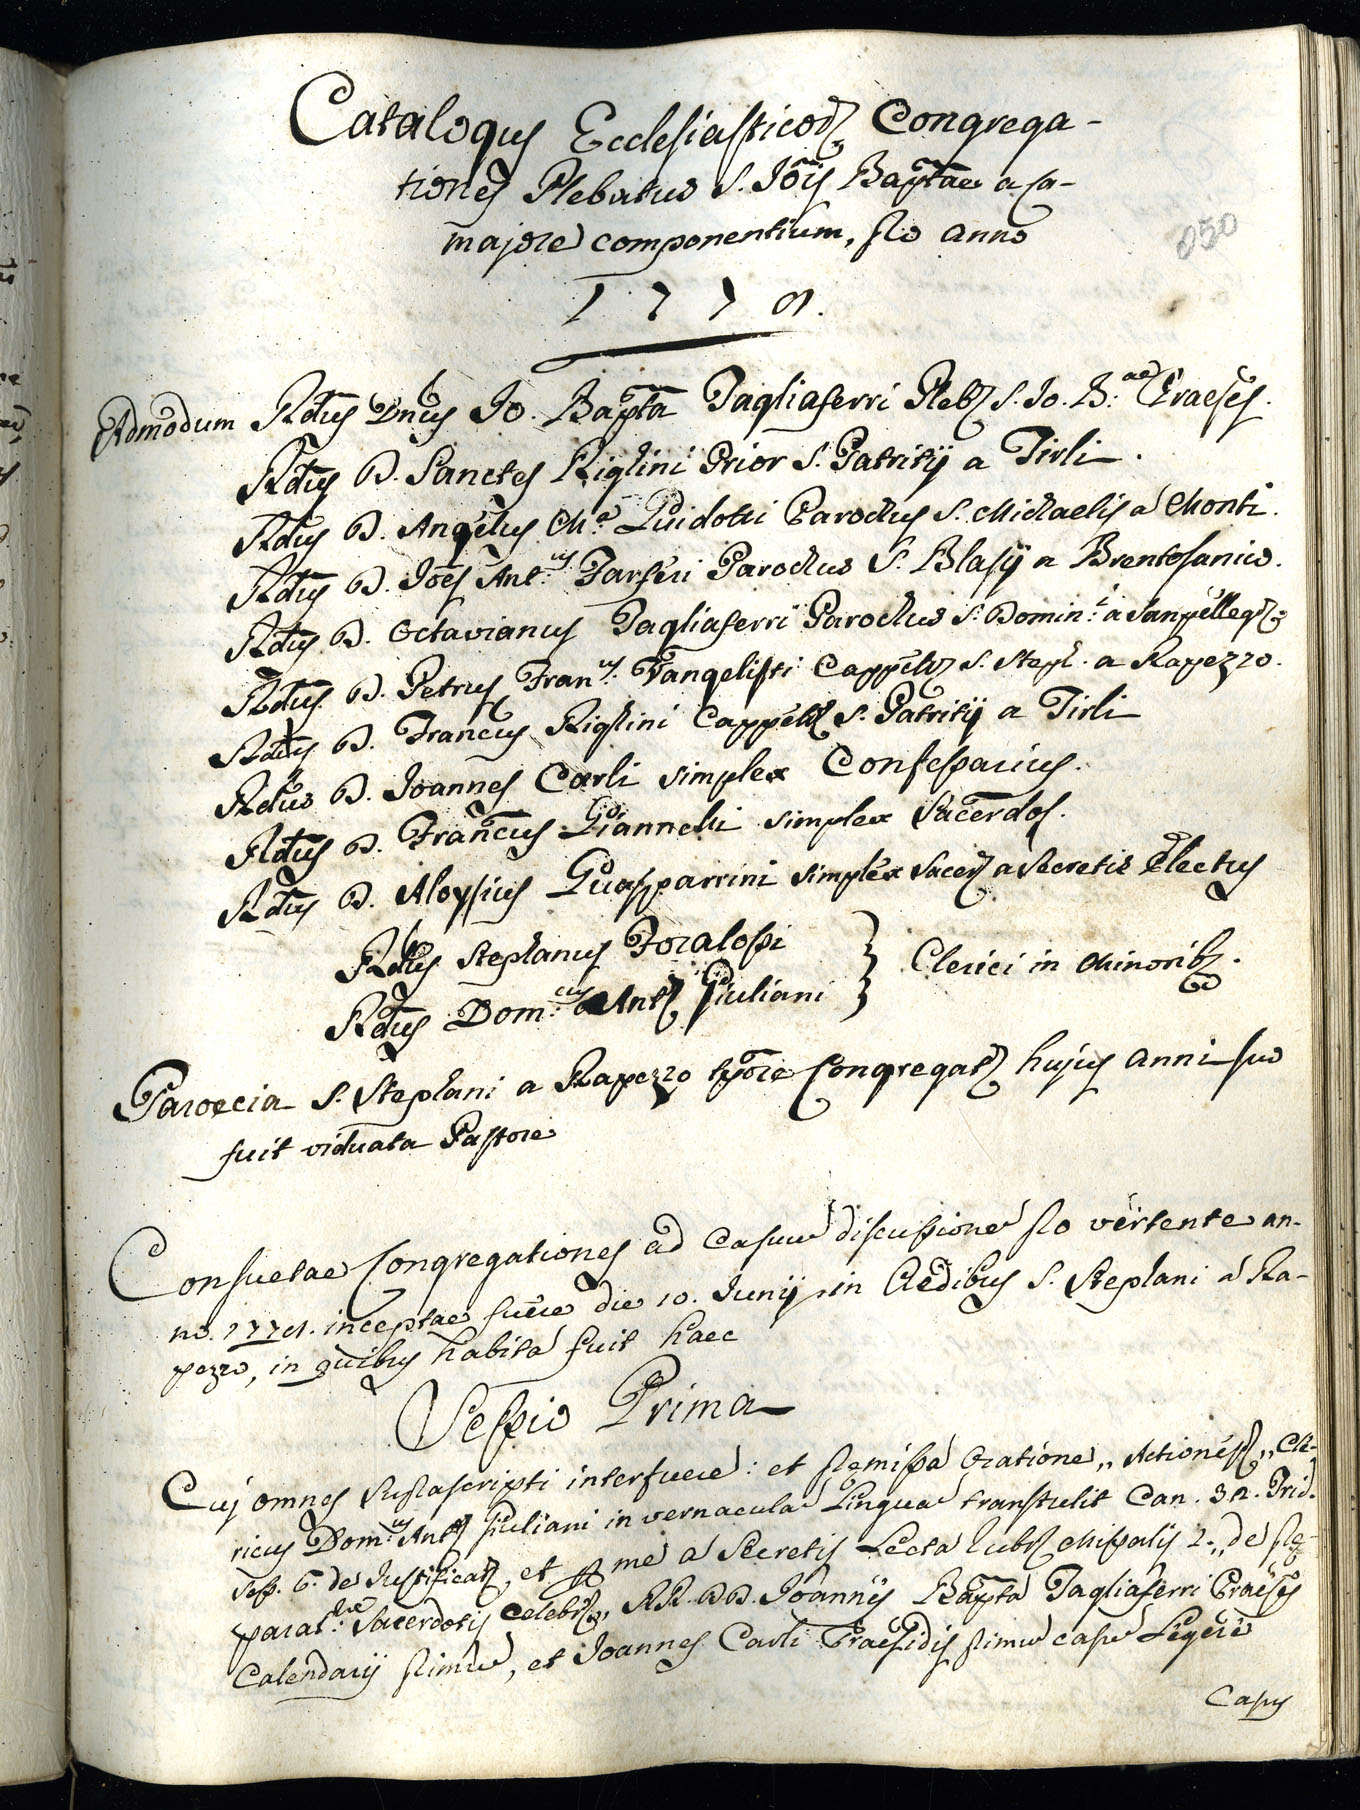 Catalogus Ecclesiasticorꝫ Congrega-
tiones Plebatus S. Jõis Bap̃tae a Ca-
majore componentium, pro anno
177
050
Admodum Rd̃us Dñus Jo. Bap̃ta Tagliaferri Plebꝫ S. Jo. B.ae Praeses.
Rd̃us D. Sanctes Righini Prior S. Patritij a Tirli.
Rd̃us D. Angelus M.a Guidotti Parochus S. Michaelis a Monti.
Rd̃us D. Jões Ant.us Parochus S. Blasij a Brentosanico.
Rd̃us D. Octavianus Tagliaferri Parochus S. Domin.i a Sanpellegꝫ
Rd̃us D. Petrus Fran.us Vangelisti Cappelꝫ S. Steph. a Rapezzo.
Rd̃us D. Francus Righini Cappelꝫ S. Patritij a Tirli
Rd̃us D. Joannes Carli simplex Confessarius.
Rd̃us D. Francus Giannelli simplex Sacerdos.
Rd̃us D. Aloysius Guasparrini simplex Sacerꝫ a Secretis Electus
Rd̃us Stephanus
Rd̃us Dom.cus Antꝫ Giuliani } Clerici in Minoribꝫ.
Paroecia S. Stephani a Rapezzo tp̃ore Congregatꝫ hujus anni suo
fuit viduata Pastore
Consuetae Congregationes ad Casuũ discussionẽ pro vertente an-
no inceptae fuere die 10. Junij in Aedibus S. Stephani a Ra-
pezzo, in quibus habita fuit haec
Sessio Prima
Cuj omnes suprascripti interfuere: et premissa Oratione „ Actionesꝫ „ Cle-
ricus Dom.cus Antꝫ Giuliani in vernacula Lingua transtulit Can. 32. Trid.
Sess. 6. de Justificatꝫ, et per me a Secretis Lecta Rubrꝫ Missalis 2. „ de prę-
parat.ne Sacerdotis Celebrꝫ „ RR. DD. Joannes Bap̃ta Tagliaferri Praeses
Calendarij primũ, et Joannes Carli Praesidis primũ casũ Legere
Casus